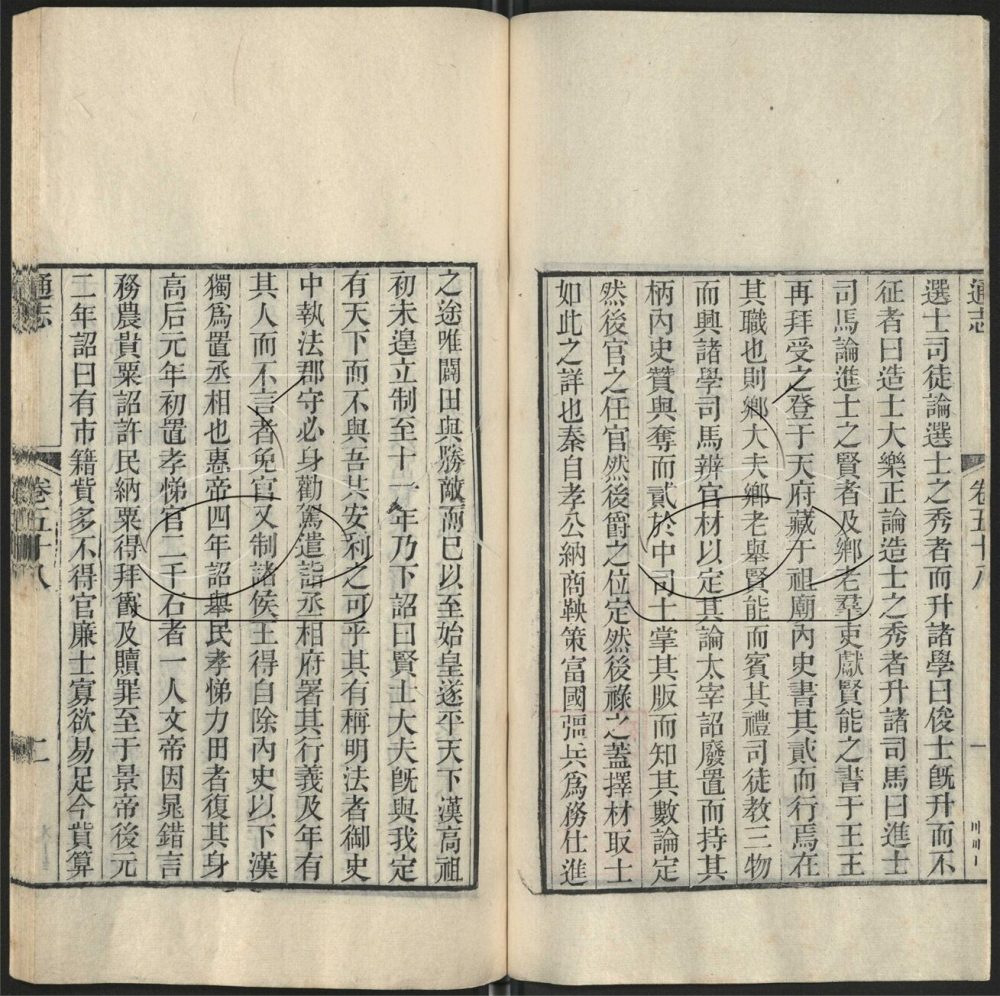 通志
卷五十八
一
選士司徒論選士之秀者而升諸學曰俊士旣升而不
征者曰造士大樂正論造士之秀者升諸司馬曰進士
司馬論進士之賢者及鄉老羣吏獻賢能之書于王王
再拜受之登于天府藏于祖廟內史書其貳而行焉在
其職也則鄉大夫鄉老舉賢能而賓其禮司徒教三物
而興諸學司馬辨官材以定其論太宰詔廢置而持其
柄內史贊與奪而貳於中司士掌其版而知其數論定
然後官之任官然後爵之位定然後祿之蓋擇材取士
如此之詳也秦自孝公納商鞅策富國彊兵爲務仕進
之途唯闢田與勝敵而已以至始皇遂平天下漢高祖
初未遑立制至十一年乃下詔曰賢士大夫旣與我定
有天下而不與吾共安利之可乎其有稱明法者御史
中執法郡守必身勸駕遣詣丞相府署其行義及年有
其人而不言者免官又制諸侯王得自除內史以下漢
獨爲置丞相也惠帝四年詔舉民孝悌力田者復其身
高后元年初置孝悌官二千石者一人文帝因晁錯言
務農貴粟詔許民納粟得拜爵及贖罪至于景帝後元
二年詔曰有市籍貲多不得官廉士寡欲易足今貲算
通志
卷五十八
二